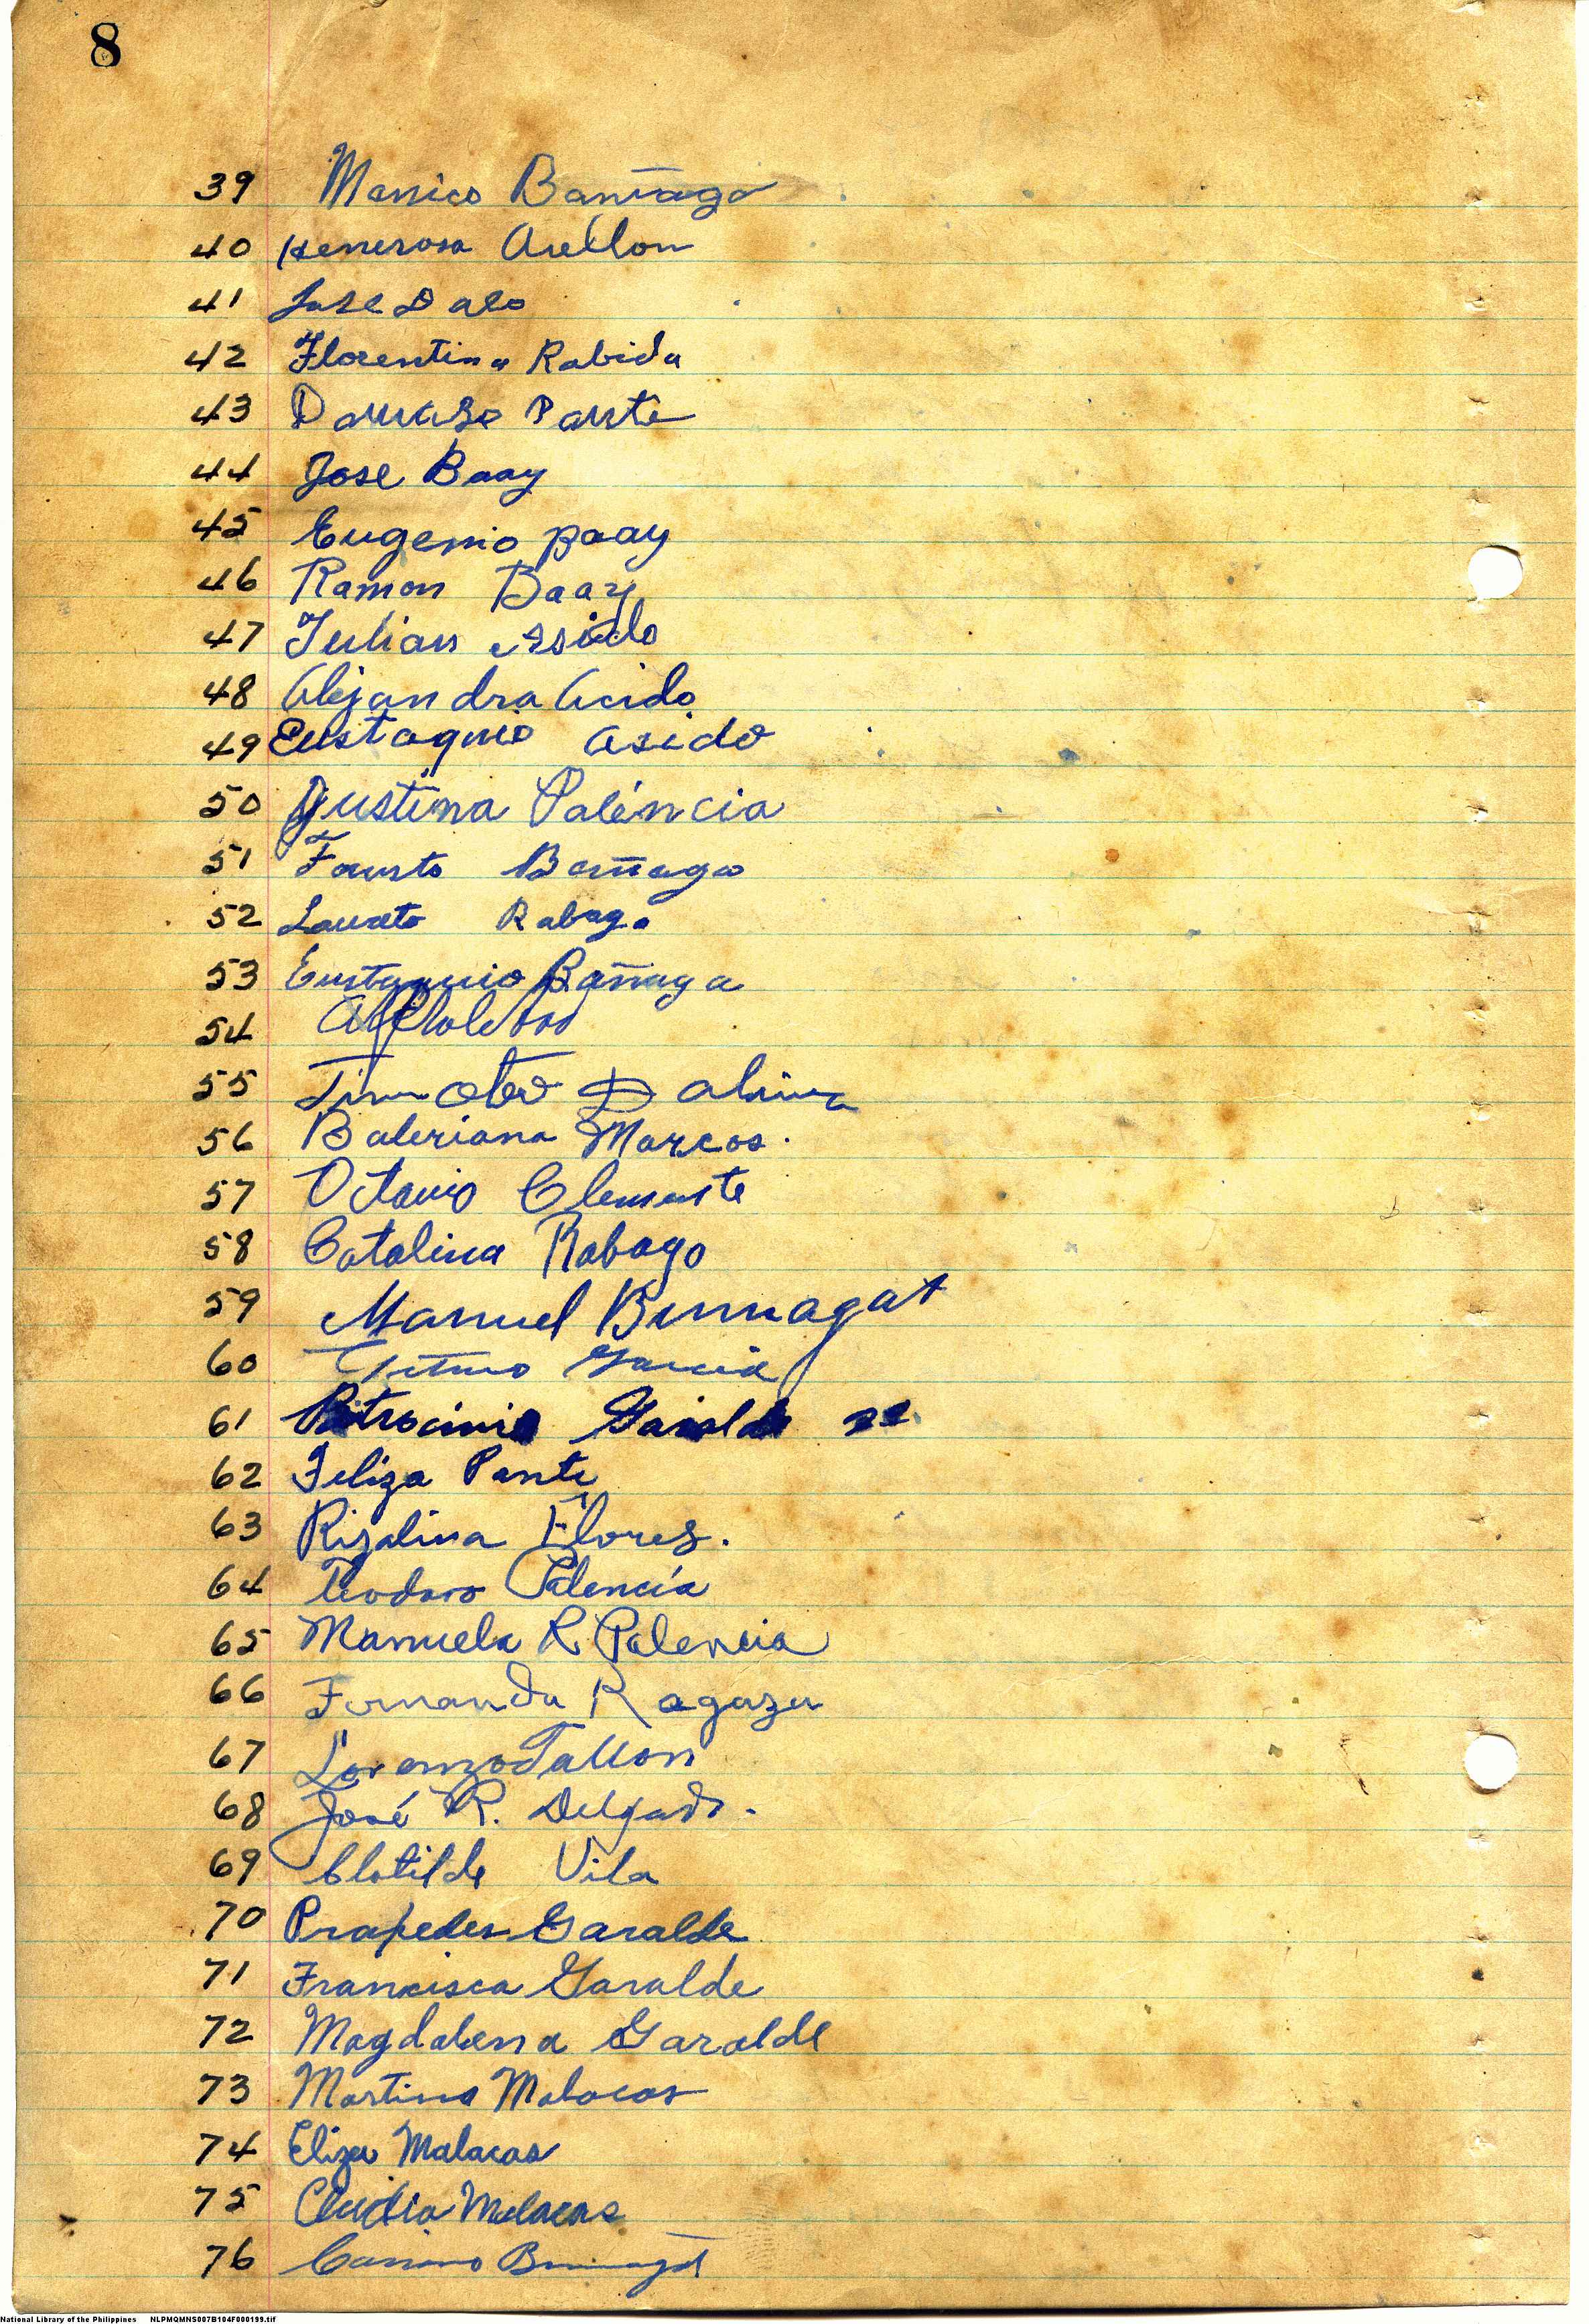 8
39 Monico Bañaga
40 Henerosa Arellon
41 Jose Dalo
42 Florentina Rabida
43 Damaso Pante
44 Jose Baay
45 Eugenio Baay
46 Ramon Baay
47 Julian Asido
48 Alejandra Acido
49 Eustaquio Asido
50 Justina Paléncia
51 Fausto Bañaga
52 Laureto Rabago
53 Eustaquio Bañaga
54
55 Timoteo
56 Baleriana Marcos.
57 Octavio Clemente
58 Catalina Rabago
59 Manuel Bumagat
60 Garcia
61 Patrocinio Garalde
62 Feliza Pante
63 Rizalina Flores.
64 Teodoro Palencia
65 Manuela R. Palencia
66 Fernanda Ragaza
67 Lorenzo Tallon
68 José R. Delgado.
69 Clotilde Vila
70 Prapedes Garalde
71 Francisca Garalde
72 Magdalena Garalde
73 Martina Malacas
74 Eliza Malacas
75 Claudia Malacas
76 Casiano Bumagat
National Library of the Philippines NLPMQMNS007B104F000199.tif